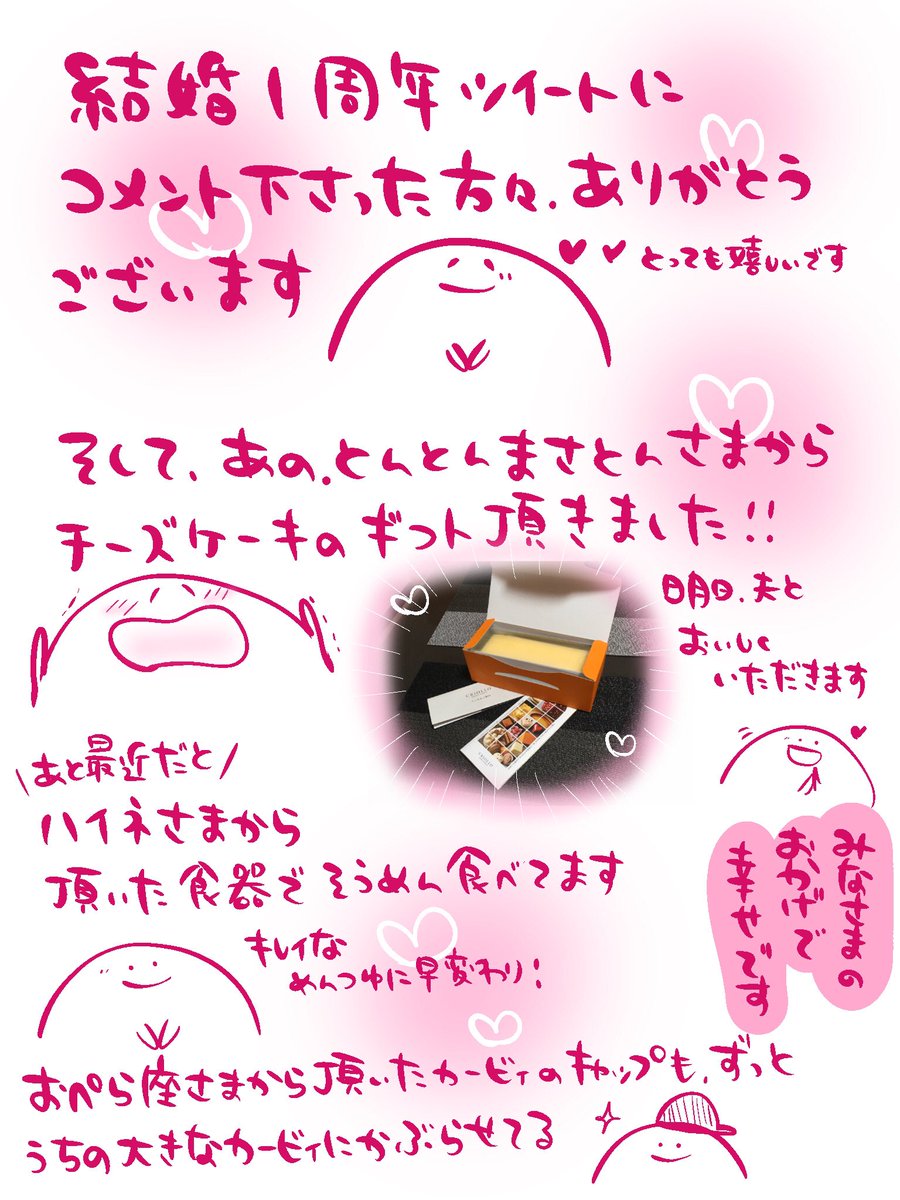 結婚1周年ツイートに
コメント下さった方々、ありがとう
ございます
とっても嬉しいです
そして、あの、とんとんまさとんさまから
チーズケーキのギフト頂きました!!
明日、夫と
おいしく
いただきます
\あと最近だと/
ハイネさまから
頂いた食器でそうめん食べてます
キレイな
めんつゆに早変わり!
みなさまの
おかげで
幸せです
おぺら座さまから頂いたカービィのキャップも、ずっと
うちの大きなカービィにかぶらせてる